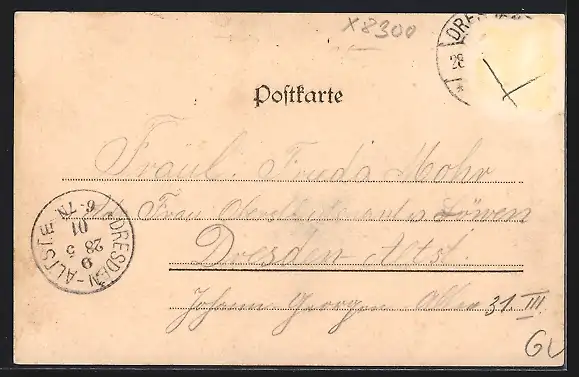 X8300
DRESDEN
28
Postkarte
Fräul. Fruda Mohr
Frau
Löwen
Dresden Altst.
Johann Georgen Allee 31 III
DRESDEN-ALTSTE
6-7N
01
28 5
9
GL